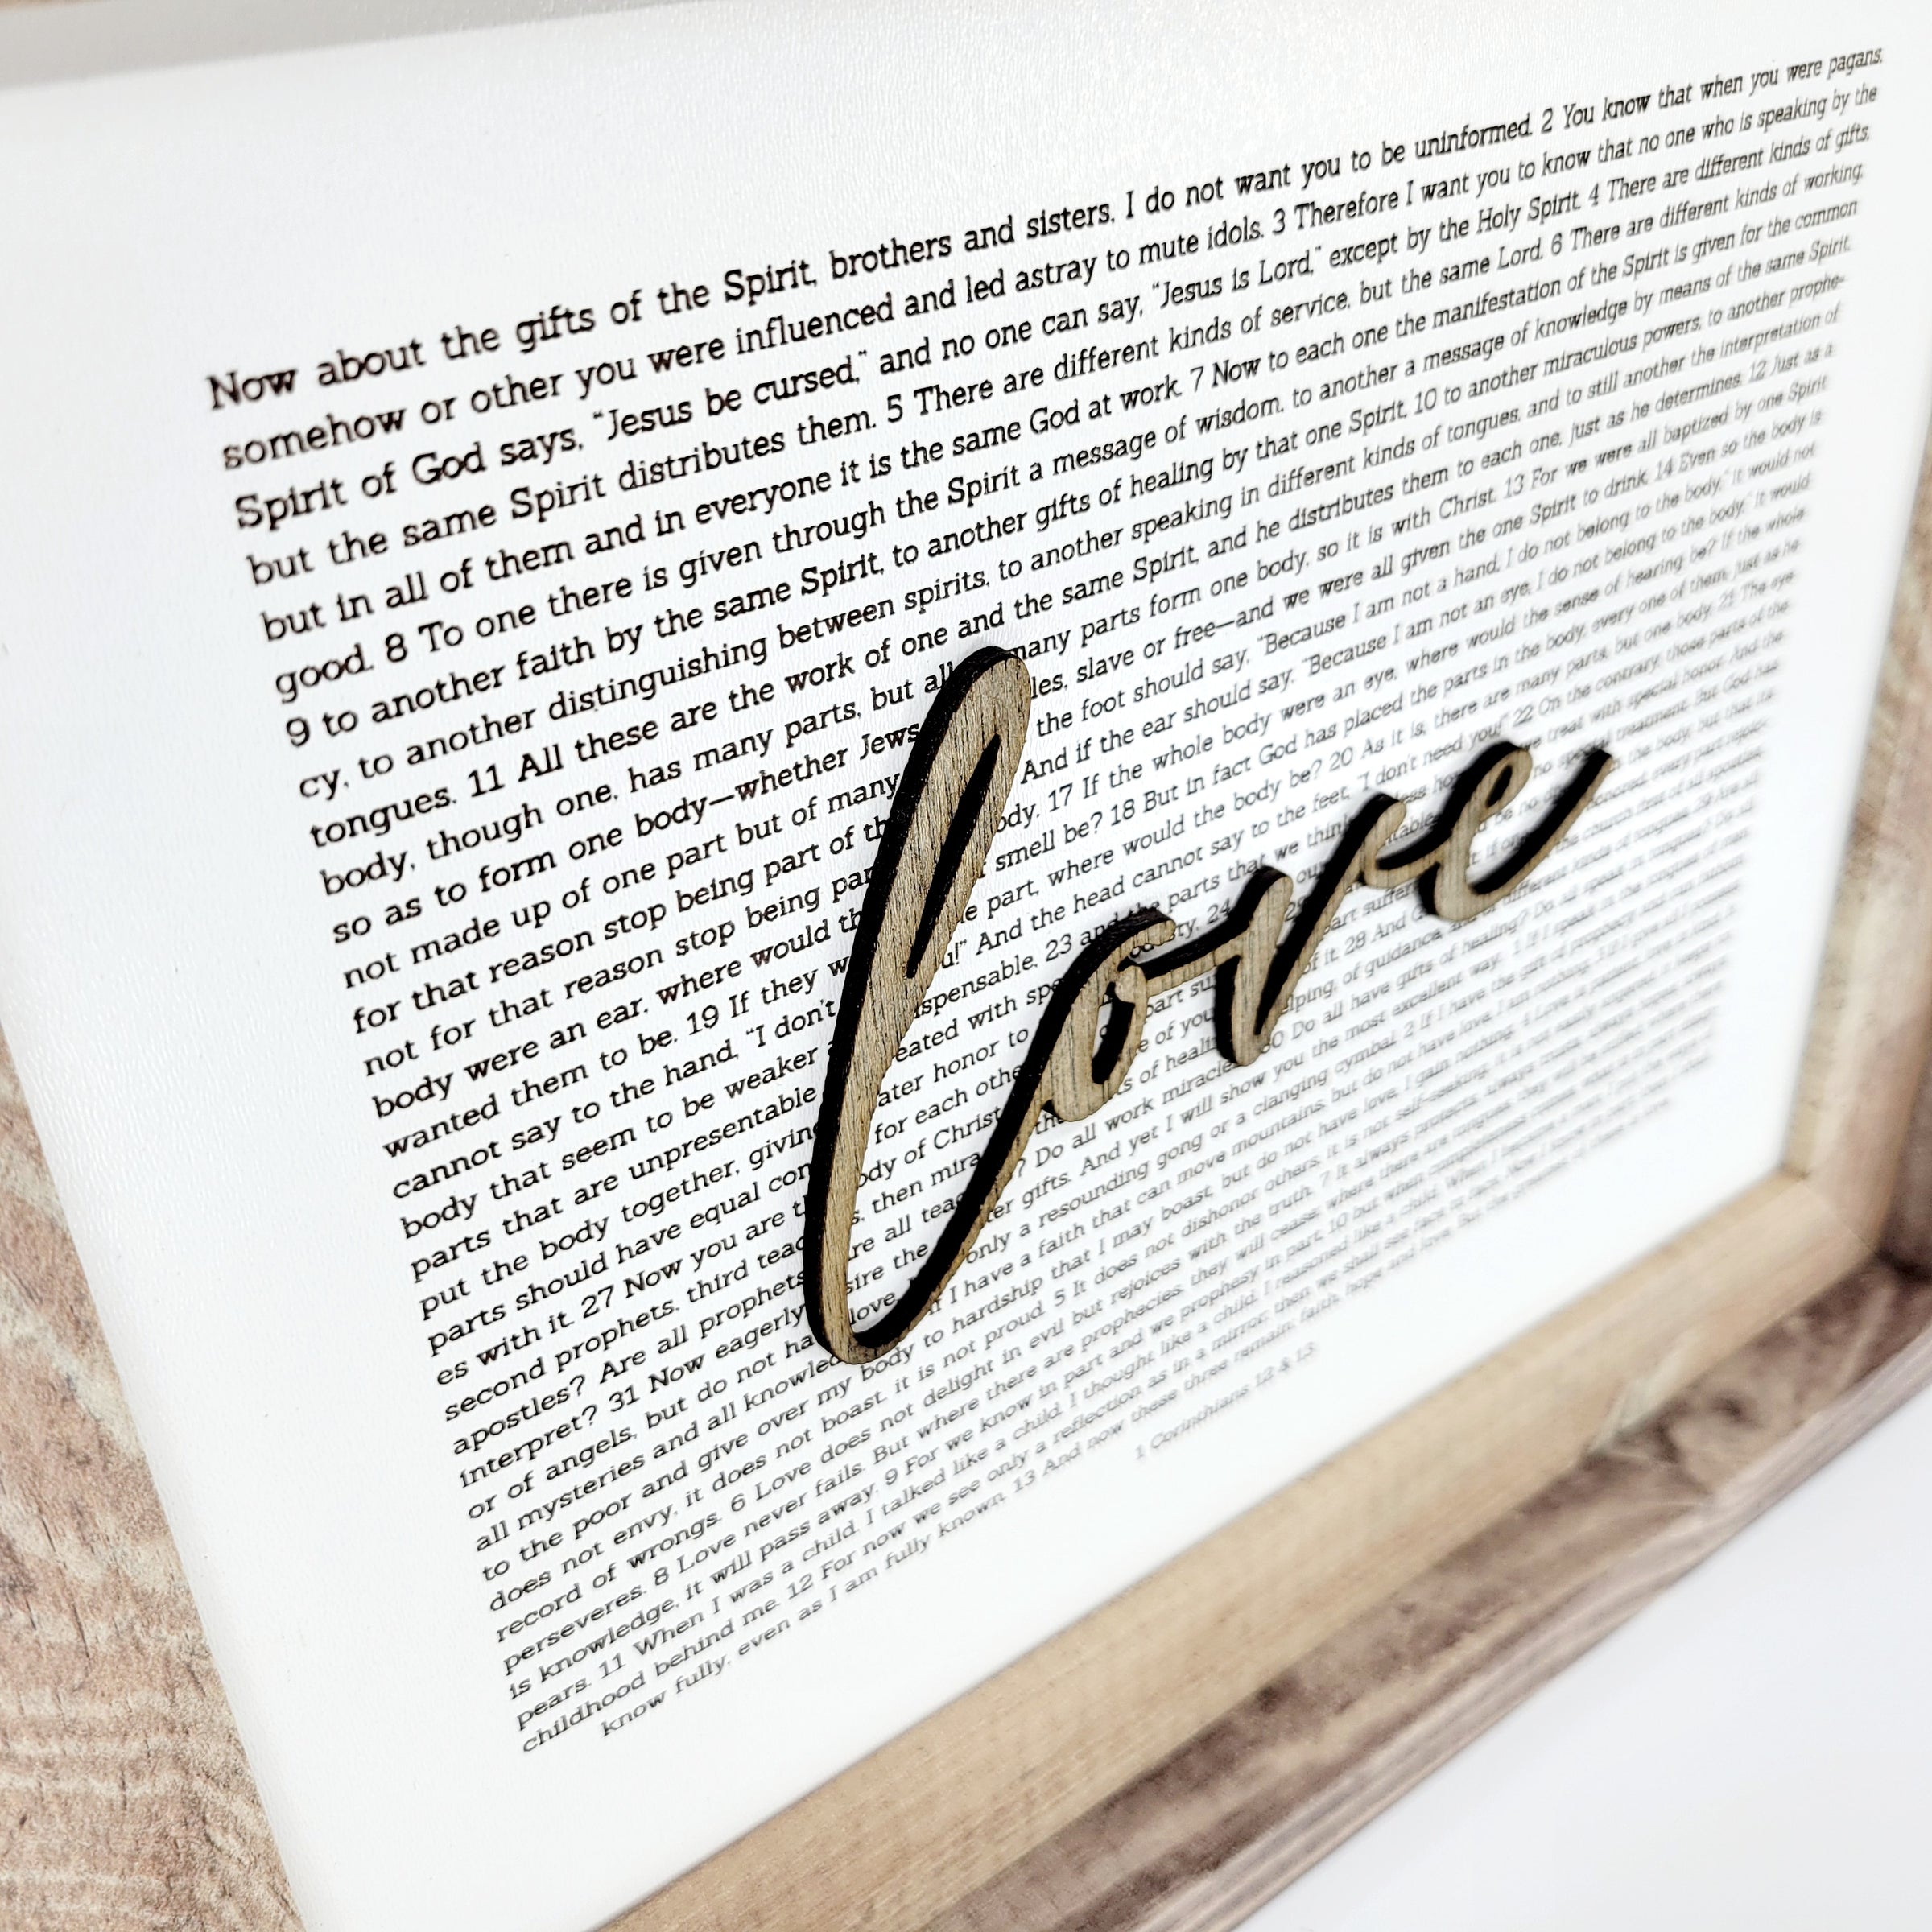 Now about the gifts of the Spirit, brothers and sisters, I do not want you to be uninformed. 2 You know that when you were pagans,
somehow or other you were influenced and led astray to mute idols. 3 Therefore I want you to know that no one who is speaking by the
Spirit of God says, "Jesus be cursed," and no one can say, "Jesus is Lord," except by the Holy Spirit. 4 There are different kinds of gifts,
but the same Spirit distributes them. 5 There are different kinds of service, but the same Lord. 6 There are different kinds of working,
but in all of them and in everyone it is the same God at work. 7 Now to each one the manifestation of the Spirit is given for the common
good. 8 To one there is given through the Spirit a message of wisdom, to another a message of knowledge by means of the same Spirit,
9 to another faith by the same Spirit, to another gifts of healing by that one Spirit, 10 to another miraculous powers, to another prophe-
cy, to another distinguishing between spirits, to another speaking in different kinds of tongues, and to still another the interpretation of
tongues. 11 All these are the work of one and the same Spirit, and he distributes them to each one, just as he determines. 12 Just as a
body, though one, has many parts, but all many parts form one body, so it is with Christ. 13 For we were all baptized by one Spirit
so as to form one body—whether Jews slave or free—and we were all given the one Spirit to drink. 14 Even so the body is
not made up of one part but of many the foot should say, "Because I am not a hand, I do not belong to the body," it would not
for that reason stop being part of And if the ear should say, "Because I am not an eye, I do not belong to the body," it would
not for that reason stop being 17 If the whole body were an eye, where would the sense of hearing be? If the whole
body were an ear, where would smell be? 18 But in fact God has placed the parts in the body, every one of them, just as he
wanted them to be. 19 If they part, where would the body be? 20 As it is, there are many parts, but one body. 21 The eye
cannot say to the hand, "I don't And the head cannot say to the feet, "I don't need you!" 22 On the contrary, those parts of the
body that seem to be weaker 23 and the parts that we think treat with special honor. And the
parts that are unpresentable with no special treatment. But God has
put the body together, giving honor to the body, but that its
parts should have equal for each
es with it. 27 Now you are of Christ
second prophets, third then
apostles? Are all prophets all Do all work 30 Do all have gifts of healing?
interpret? 31 Now eagerly the gifts. And yet I will show you the most excellent way.
or of angels, but do not love, only a resounding gong or a clanging cymbal. 2 If I have the gift of prophecy
all mysteries and all I have a faith that can move mountains, but do not have love, I am nothing.
to the poor and give over my body to hardship that I may boast, but do not have love, I gain nothing.
does not envy, it does not boast, it is not proud. 5 It does not dishonor others, it is not self-seeking,
record of wrongs. 6 Love does not delight in evil but rejoices with the truth. 7 It always protects,
perseveres. 8 Love never fails. But where there are prophecies, they will cease; where there are tongues,
is knowledge, it will pass away. 9 For we know in part and we prophesy in part, 10 but when completeness
pears. 11 When I was a child, I talked like a child, I thought like a child, I reasoned like a child.
childhood behind me. 12 For now we see only a reflection as in a mirror; then we shall see face to face.
know fully, even as I am fully known. 13 And now these three remain: faith, hope and love. But the greatest of these
1 Corinthians 12 & 13
love